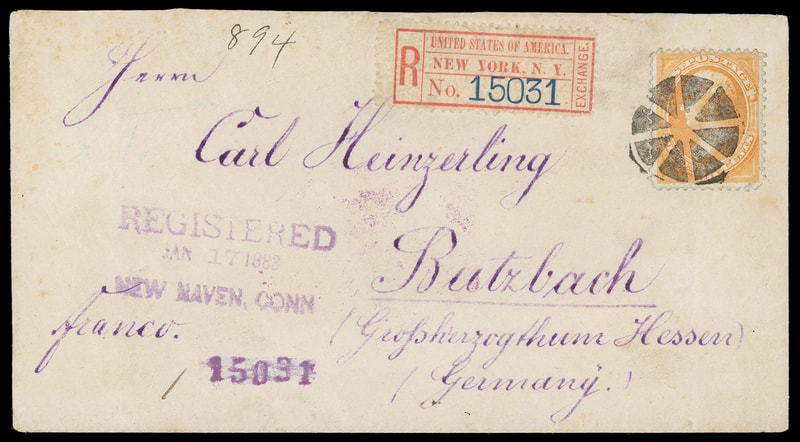 894
UNITED STATES OF AMERICA.
R
NEW YORK, N. Y.
No. 15031
EXCHANGE.
POSTAGE
CENTS
Herrn
Carl Heinzerling
REGISTERED
JAN 17 1883
NEW HAVEN, CONN
Butzbach
franco.
(Großherzogthum Hessen)
15031
(Germany.)